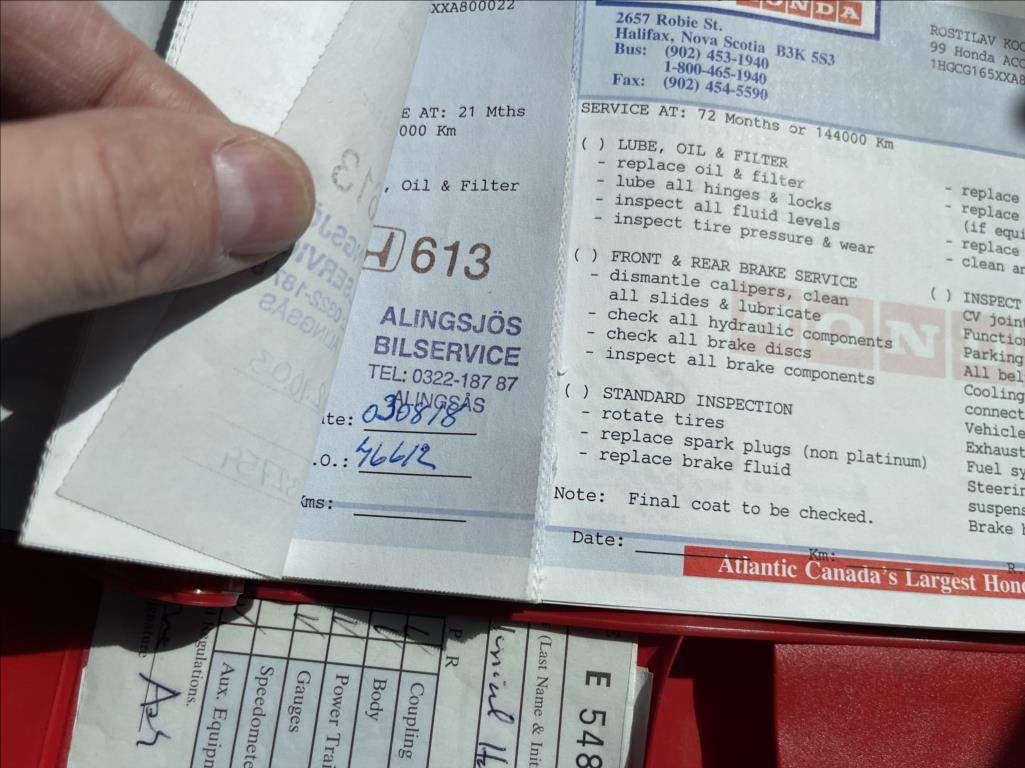 XXA800022
E AT: 21 Mths
000 Km
, Oil & Filter
613
ALINGSJÖS
BILSERVICE
TEL: 0322-187 87
ALINGSÅS
te: 030818
.O.: 46612
Kms:
HONDA
2657 Robie St.
Halifax, Nova Scotia B3K 5S3
Bus: (902) 453-1940
1-800-465-1940
Fax: (902) 454-5590
ROSTILAV KOC
99 Honda ACC
1HGCG165XXA8
SERVICE AT: 72 Months or 144000 Km
( ) LUBE, OIL & FILTER
- replace oil & filter
- lube all hinges & locks
- inspect all fluid levels
- inspect tire pressure & wear
( ) FRONT & REAR BRAKE SERVICE
- dismantle calipers, clean
all slides & lubricate
- check all hydraulic components
- check all brake discs
- inspect all brake components
( ) STANDARD INSPECTION
- rotate tires
- replace spark plugs (non platinum)
- replace brake fluid
Note: Final coat to be checked.
Date: Km: R
- replace
- replace
(if equi
- replace
- clean an
( ) INSPECT
CV join
Function
Parking
All bel
Cooling
connect
Vehicle
Exhaust
Fuel sy
Steerin
suspens
Brake
Atlantic Canada's Largest Hon
E 548
(Last Name & Init
P R
Coupling
Body
Power Trai
Gauges
Speedomete
Aux. Equipm
Regulations.